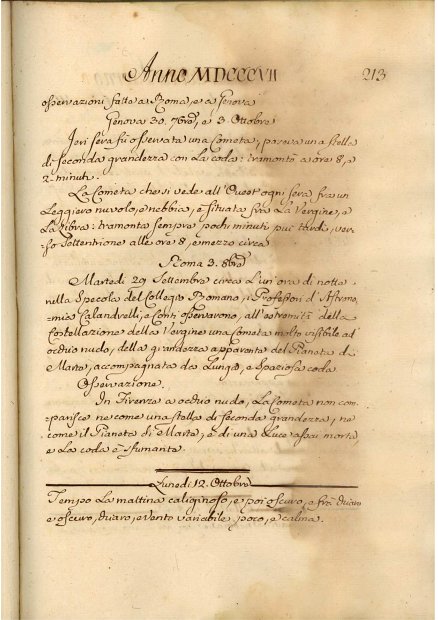 Anno MDCCCVII
213
osservazioni fatte a Roma, e a Genova
Genova 30. 7bre, e 3. Ottobre
Jeri sera fù osservata una Cometa, pareva una stella
di seconda grandezza con La coda: tramontò a ore 8, e
2 minuti.
La Cometa che si vede all'Ovest ogni sera fra un
Leggiero nuvolo, e nebbia, è situata frà La Vergine, e
La Libra: tramonta sempre pochi minuti più tardi, ver-
so Settentrione alle ore 8, e mezzo circa
Roma 3. 8bre
Martedi 29 Settembre circa L'un'ora di notte
nella Specola del Collegio Romano, i Professori d'Astrono-
mia Calandrelli, e Conti osservarono, all'estremità della
Costellazione della Vergine una Cometa molto visibile ad
occhio nudo, della grandezza apparente del Pianeta di
Marte, accompagnata da Lunga, e spaziosa coda
Osservazione.
In Firenze a occhio nudo, La Cometa non com-
parisce ne come una stella di seconda grandezza, ne
come il Pianeta di Marte, è di una Luce assai morta,
e La coda è sfumante.
Lunedi 12. Ottobre
Tempo La mattina caliginoso, e poi oscuro, e frà chiaro
e oscuro, chiaro, e vento variabile poco, e calma.